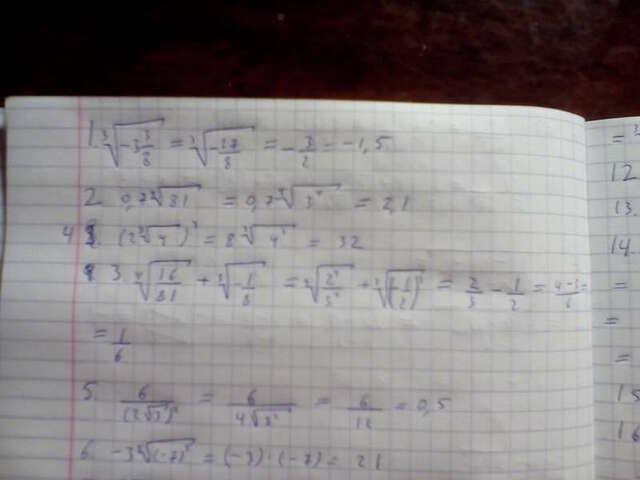 1 ∛(-3 3/8) = ∛(-27/8) = -3/2 = -1,5
2 0,7 ∜81 = 0,7 ∜(3⁴) = 2,1
4 (2∛4)³ = 8 ∛(4³) = 32
3 ∜(16/81) + ∛(-1/8) = ∜(2⁴/3⁴) + ∛((-1/2)³) = 2/3 - 1/2 = (4-3)/6 =
= 1/6
5. 6/(2√3)² = 6/(4√3²) = 6/12 = 0,5
6. -3 ∛((-7)³) = (-3)·(-7) = 21
=
12
13
14
=
=
=
15
16